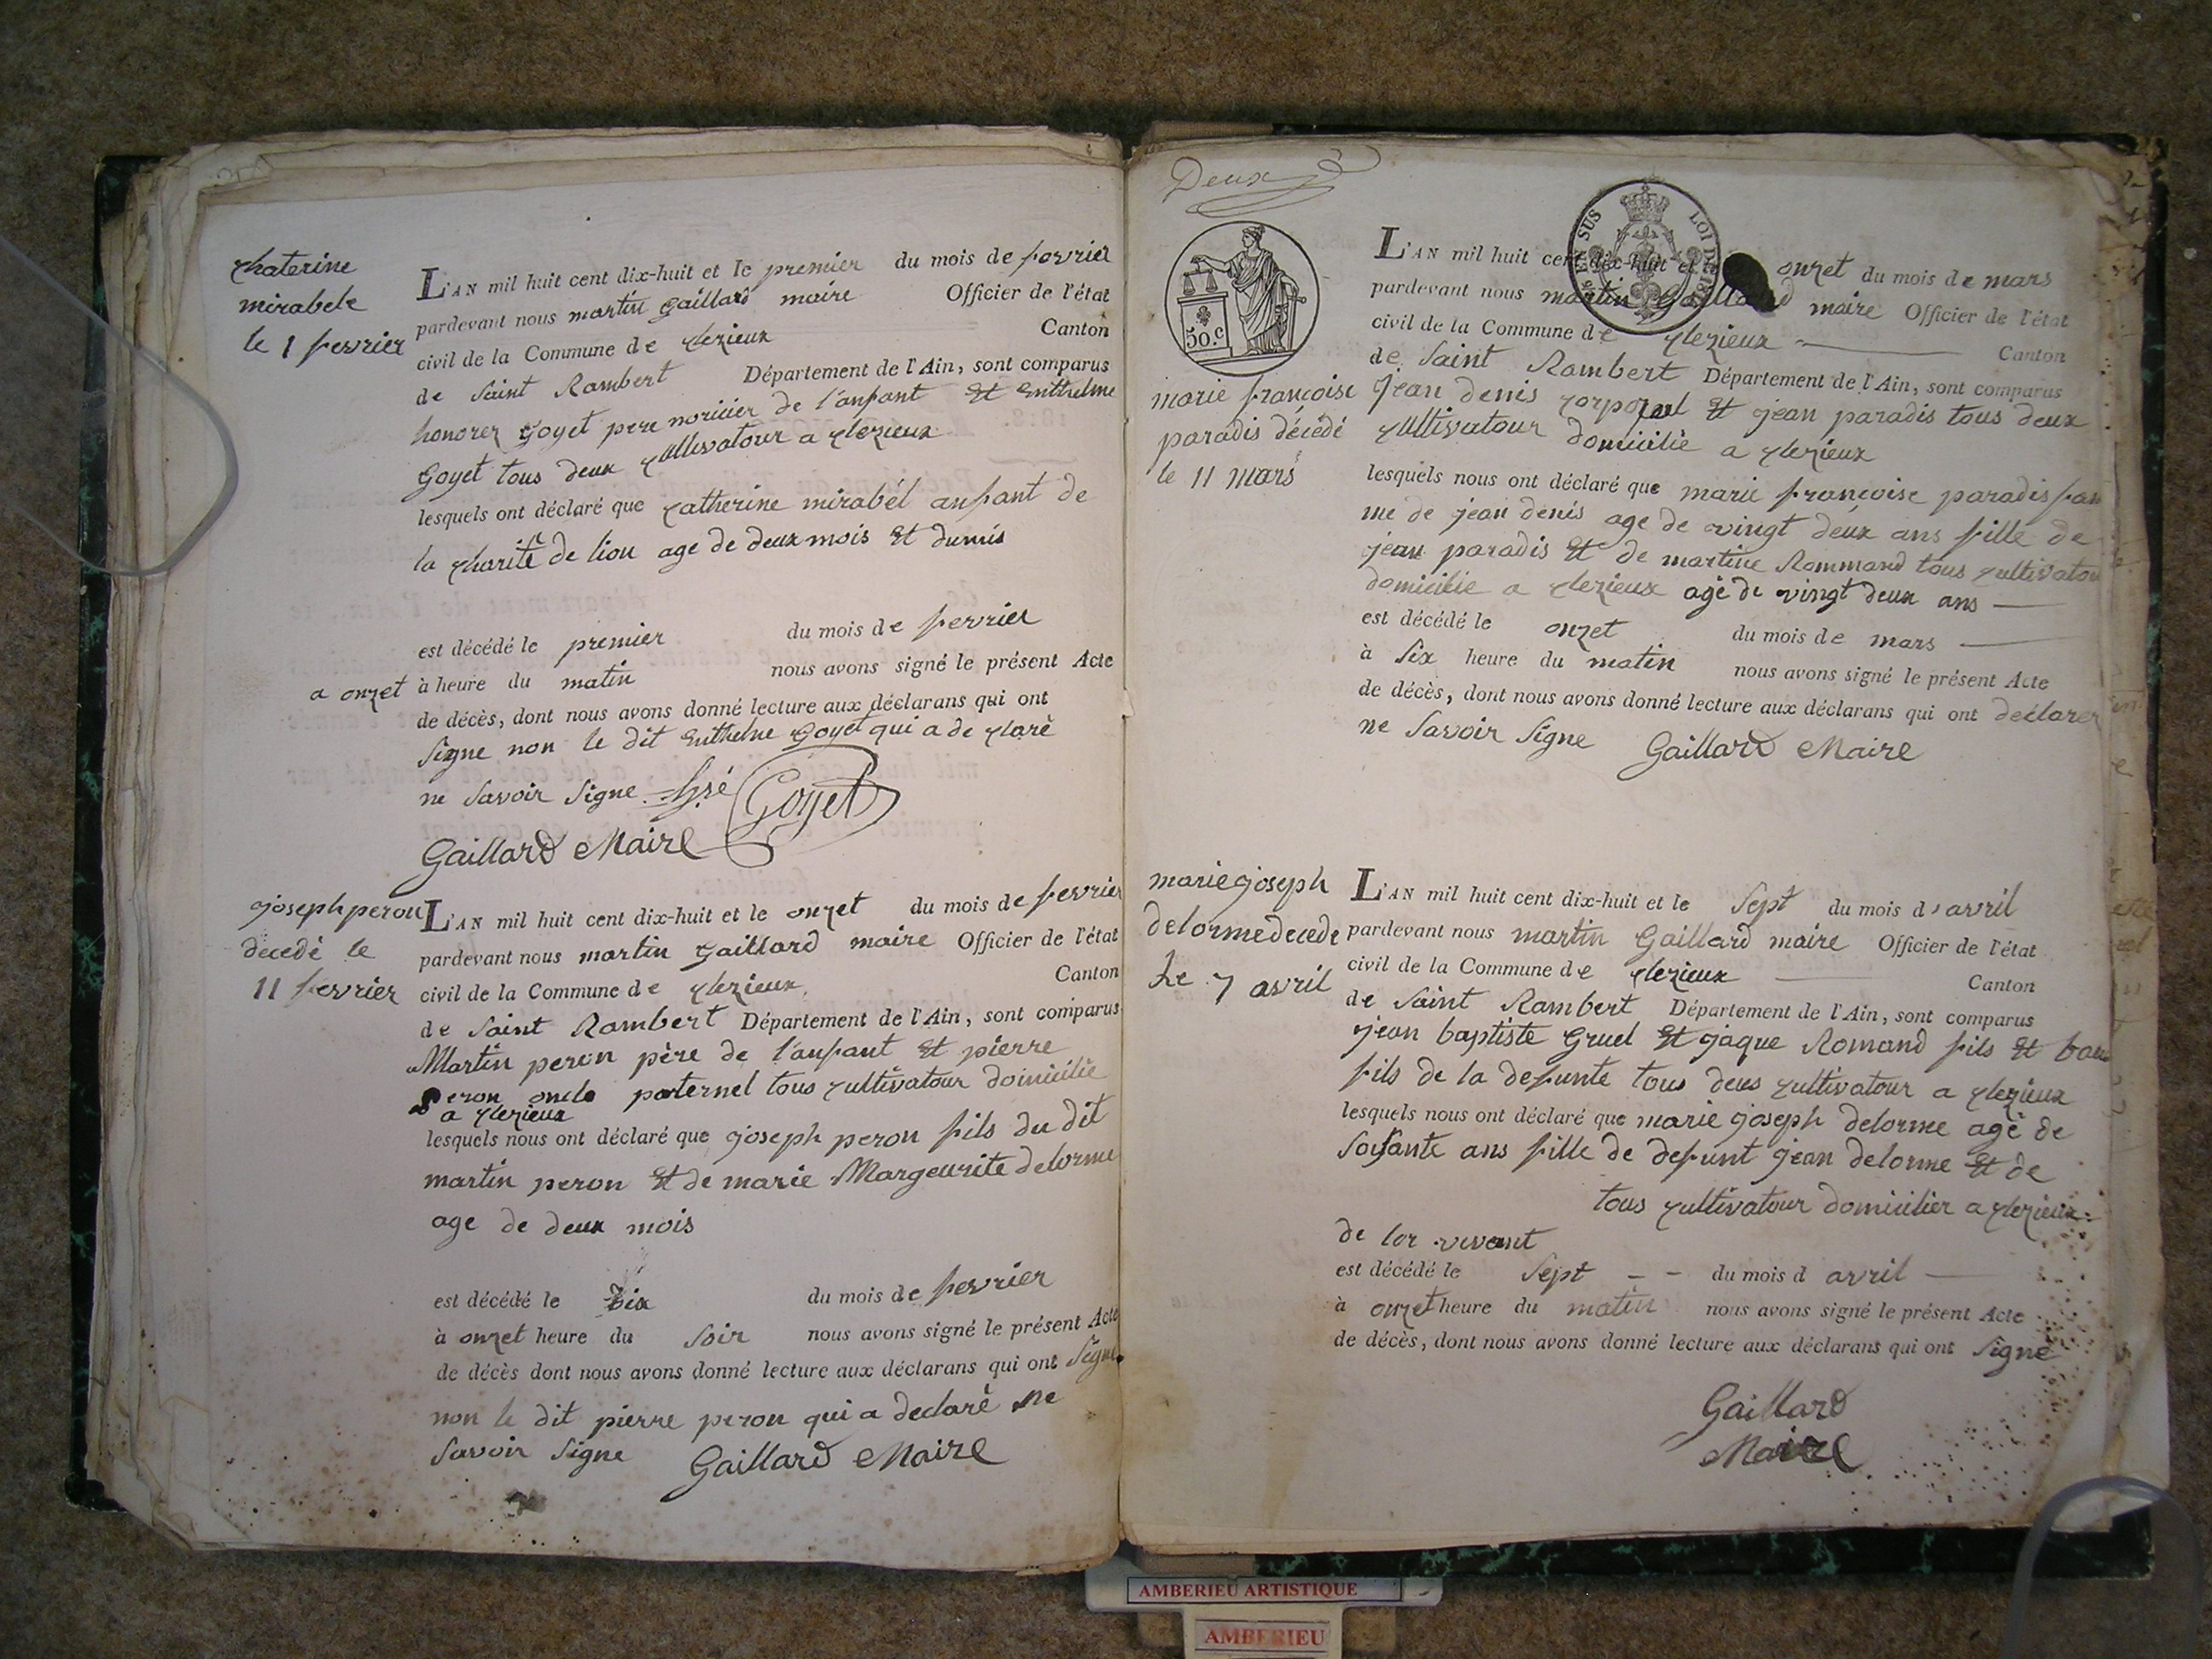 chaterine
mirabele
le 1 fevrier
L'AN mil huit cent dix-huit et le premier du mois de fevrier
pardevant nous martin gaillard maire Officier de l'état
civil de la Commune de clezieux Canton
de Saint Rambert Département de l'Ain, sont comparus
honorez goyet pere noricier de l'anfant Et Enthelme
Goyet tous deux cultivatour a clezieux
lesquels ont déclaré que catherine mirabél anfant de
la charité de lion age de deux mois Et dumis
est décédé le premier du mois de fevrier
a onzet à heure du matin nous avons signé le présent Acte
de décès, dont nous avons donné lecture aux déclarans qui ont
signe non le dit Enthelme Goyet qui a de claré
ne savoir signe Goyet
Gaillard Maire
joseph peron
decedé le
11 fevrier
L'AN mil huit cent dix-huit et le onzet du mois de fevrier
pardevant nous martin gaillard maire Officier de l'état
civil de la Commune de clezieux Canton
de Saint Rambert Département de l'Ain, sont comparus
Martin peron père de l'anfant Et pierre
Peron oncle paternel tous cultivatour doinicilié
a clezieux
lesquels nous ont déclaré que joseph peron fils du dit
martin peron Et de marie Margeurite delorme
age de deux mois
est décédé le Dix du mois de fevrier
à onzet heure du soir nous avons signé le présent Acte
de décès dont nous avons donné lecture aux déclarans qui ont signe
non le dit pierre peron qui a declaré ne
savoir signe Gaillard Maire
Deux
50.c
SUS LOI DE
marie françoise
paradis décédé
le 11 mars
L'AN mil huit cent dix-huit et le onzet du mois de mars
pardevant nous martin Gaillard maire Officier de l'état
civil de la Commune de clezieux Canton
de Saint Rambert Département de l'Ain, sont comparus
jean denis corporal Et jean paradis tous deux
cultivatour domicilié a clezieux
lesquels nous ont déclaré que marie françoise paradis fam
me de jean denis age de vingt deux ans fille de
jean paradis Et de martine Rommand tous cultivatou
domicilie a clezieux agé de vingt deux ans
est décédé le onzet du mois de mars
à six heure du matin nous avons signé le présent Acte
de décès, dont nous avons donné lecture aux déclarans qui ont declarer
ne savoir signe Gaillard Maire
marie joseph
delorme decede
Le 7 avril
L'AN mil huit cent dix-huit et le sept du mois d'avril
pardevant nous martin Gaillard maire Officier de l'état
civil de la Commune de clezieux Canton
de Saint Rambert Département de l'Ain, sont comparus
jean baptiste Gruel Et jaque Romand fils Et bau
fils de la defunte tous deus cultivatour a clezieux
lesquels nous ont déclaré que marie joseph delorme agé de
soisante ans fille de defunt jean delorme Et de
tous cultivatour domicilier a clezieux
de lor vivent
est décédé le sept du mois d avril
à onzet heure du matin nous avons signé le présent Acte
de décès, dont nous avons donné lecture aux déclarans qui ont signe
Gaillard
Maire
AMBERIEU ARTISTIQUE
AMBERIEU